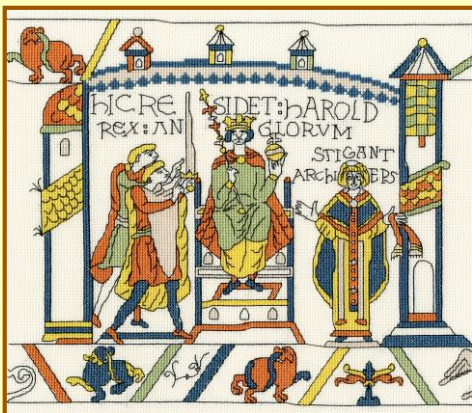 hICRE SIDET:hAROLD
REX:AN GLORVM
STIGANT
ARCHI EPS